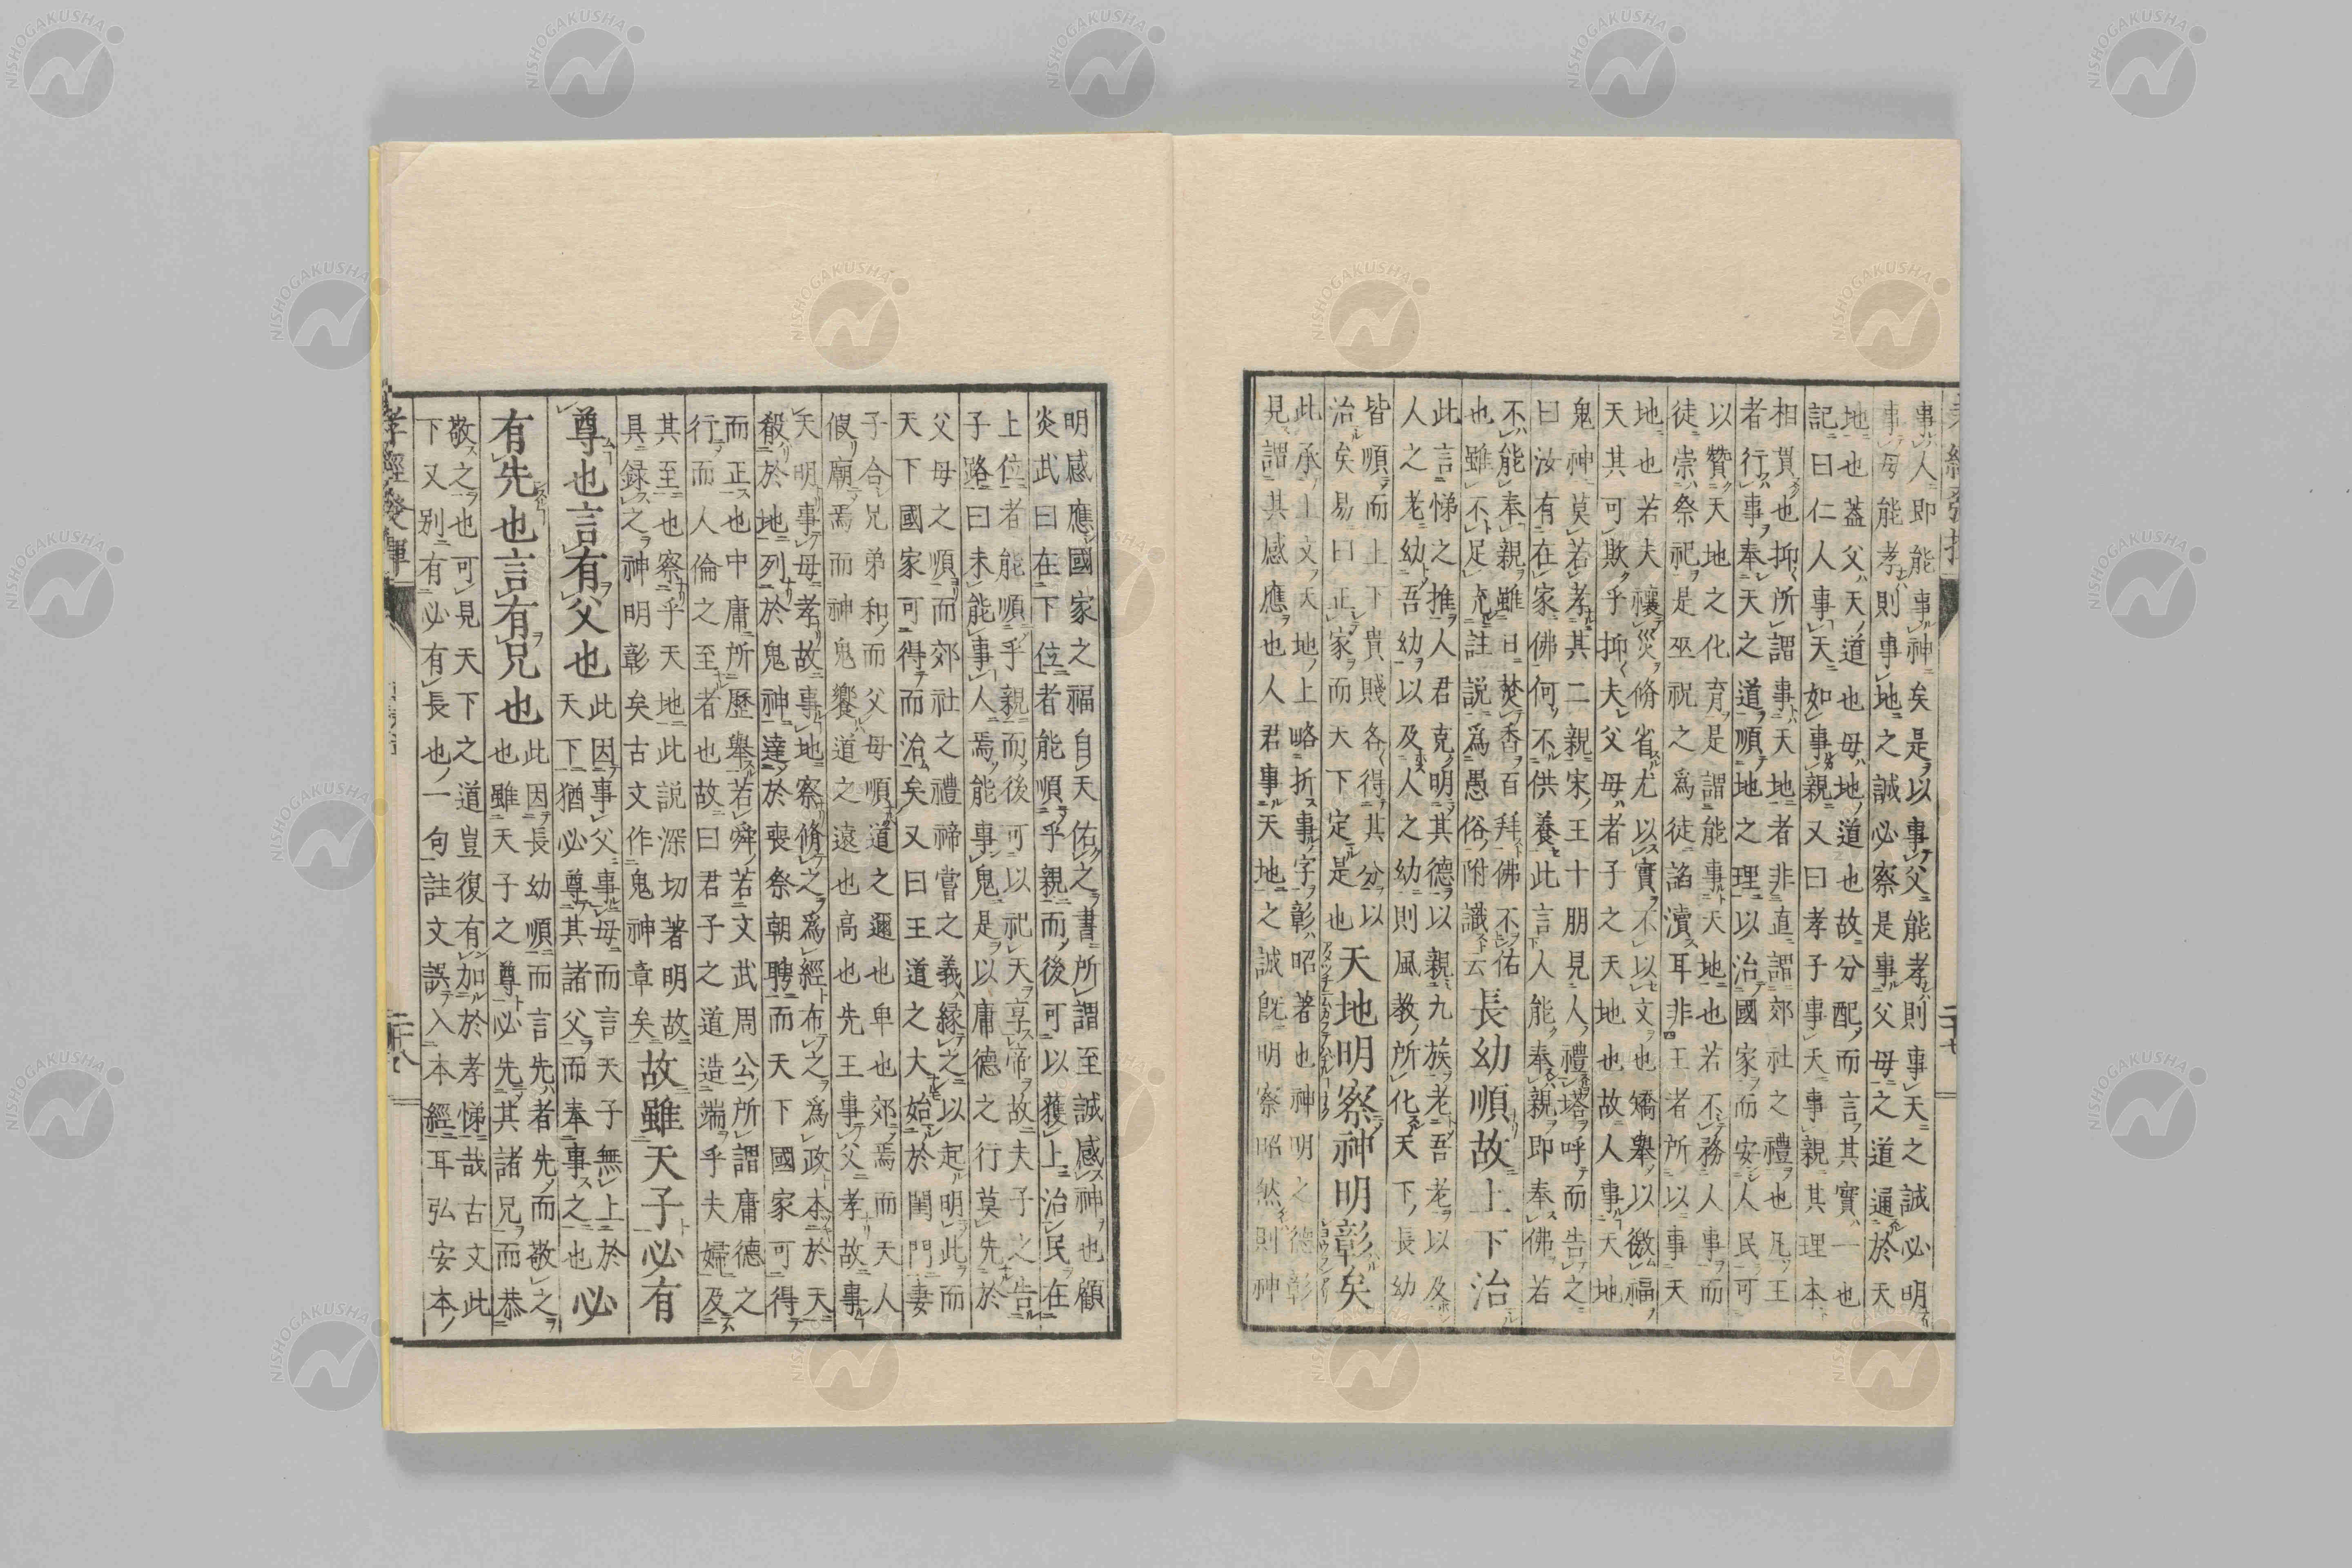 事人即能事神矣是以事父能孝則事天之誠必明
事母能孝則事地之誠必察是事父母之道通於天
地也蓋父天道也母地道也故分配而言其實一也
記曰仁人事天如事親又曰孝子事天事親其理本
相貫也抑所謂事天地者非直謂郊社之禮也凡王
者行事奉天之道順地之理以治國家而安人民可
以贊天地之化育是謂能事天地也若不務人事而
徒崇祭祀是巫祝之為徒諂瀆耳非王者所以事天
地也若夫禳災脩省尤以實不以文也矯舉以徼福
天其可欺乎抑夫父母者子之天地也故人事天地
鬼神莫若孝其二親宋王十朋見人禮塔呼而告之
曰汝有在家佛何不供養此言人能奉親即奉佛若
不能奉親雖日焚香百拜佛不佑
也雖不足充註説為愚俗附識云
長幼順故上下治
此言悌之推人君克明其德以親九族老吾老以及
人之老幼吾幼以及人之幼則風教所化天下長幼
皆順而上下貴賤各得其分以
治矣易曰正家而天下定是也
天地明察神明彰矣
此承上文天地上略折事字彰昭著也神明之德彰
見謂其感應也人君事天地之誠既明察昭然則神
明感應國家之福自天佑之書所謂至誠感神也顧
炎武曰在下位者能順乎親而後可以獲上治民在
上位者能順乎親而後可以祀天享帝故夫子之告
子路曰未能事人焉能事鬼是以庸德之行莫先於
父母之順而郊社之禮禘嘗之義緣之以起明此而
天下國家可得而治矣又曰王道之大始於閨門妻
子合兄弟和而父母順道之邇也卑也郊焉而天人
假廟焉而神鬼饗道之遠也高也先王事父孝故事
天明事母孝故事地察脩之為經布之為政本於天
殽於地列於鬼神達於喪祭朝聘而天下國家可得
而正也中庸所歷舉若舜若文武周公所謂庸德之
行而人倫之至者也故曰君子之道造端乎夫婦及
其至也察乎天地此説深切著明故
具録之神明彰矣古文作鬼神章矣
故雖天子必有
尊也言有父也
此因事父事母而言天子無上於
天下猶必尊其諸父而奉事之也
必
有先也言有兄也
此因長幼順而言先者先而敬之
也雖天子之尊必先其諸兄而恭
敬之也可見天下之道豈復有加於孝悌哉古文此
下又別有必有長也一句註文誤入本經耳弘安本
孝經發揮
二十八